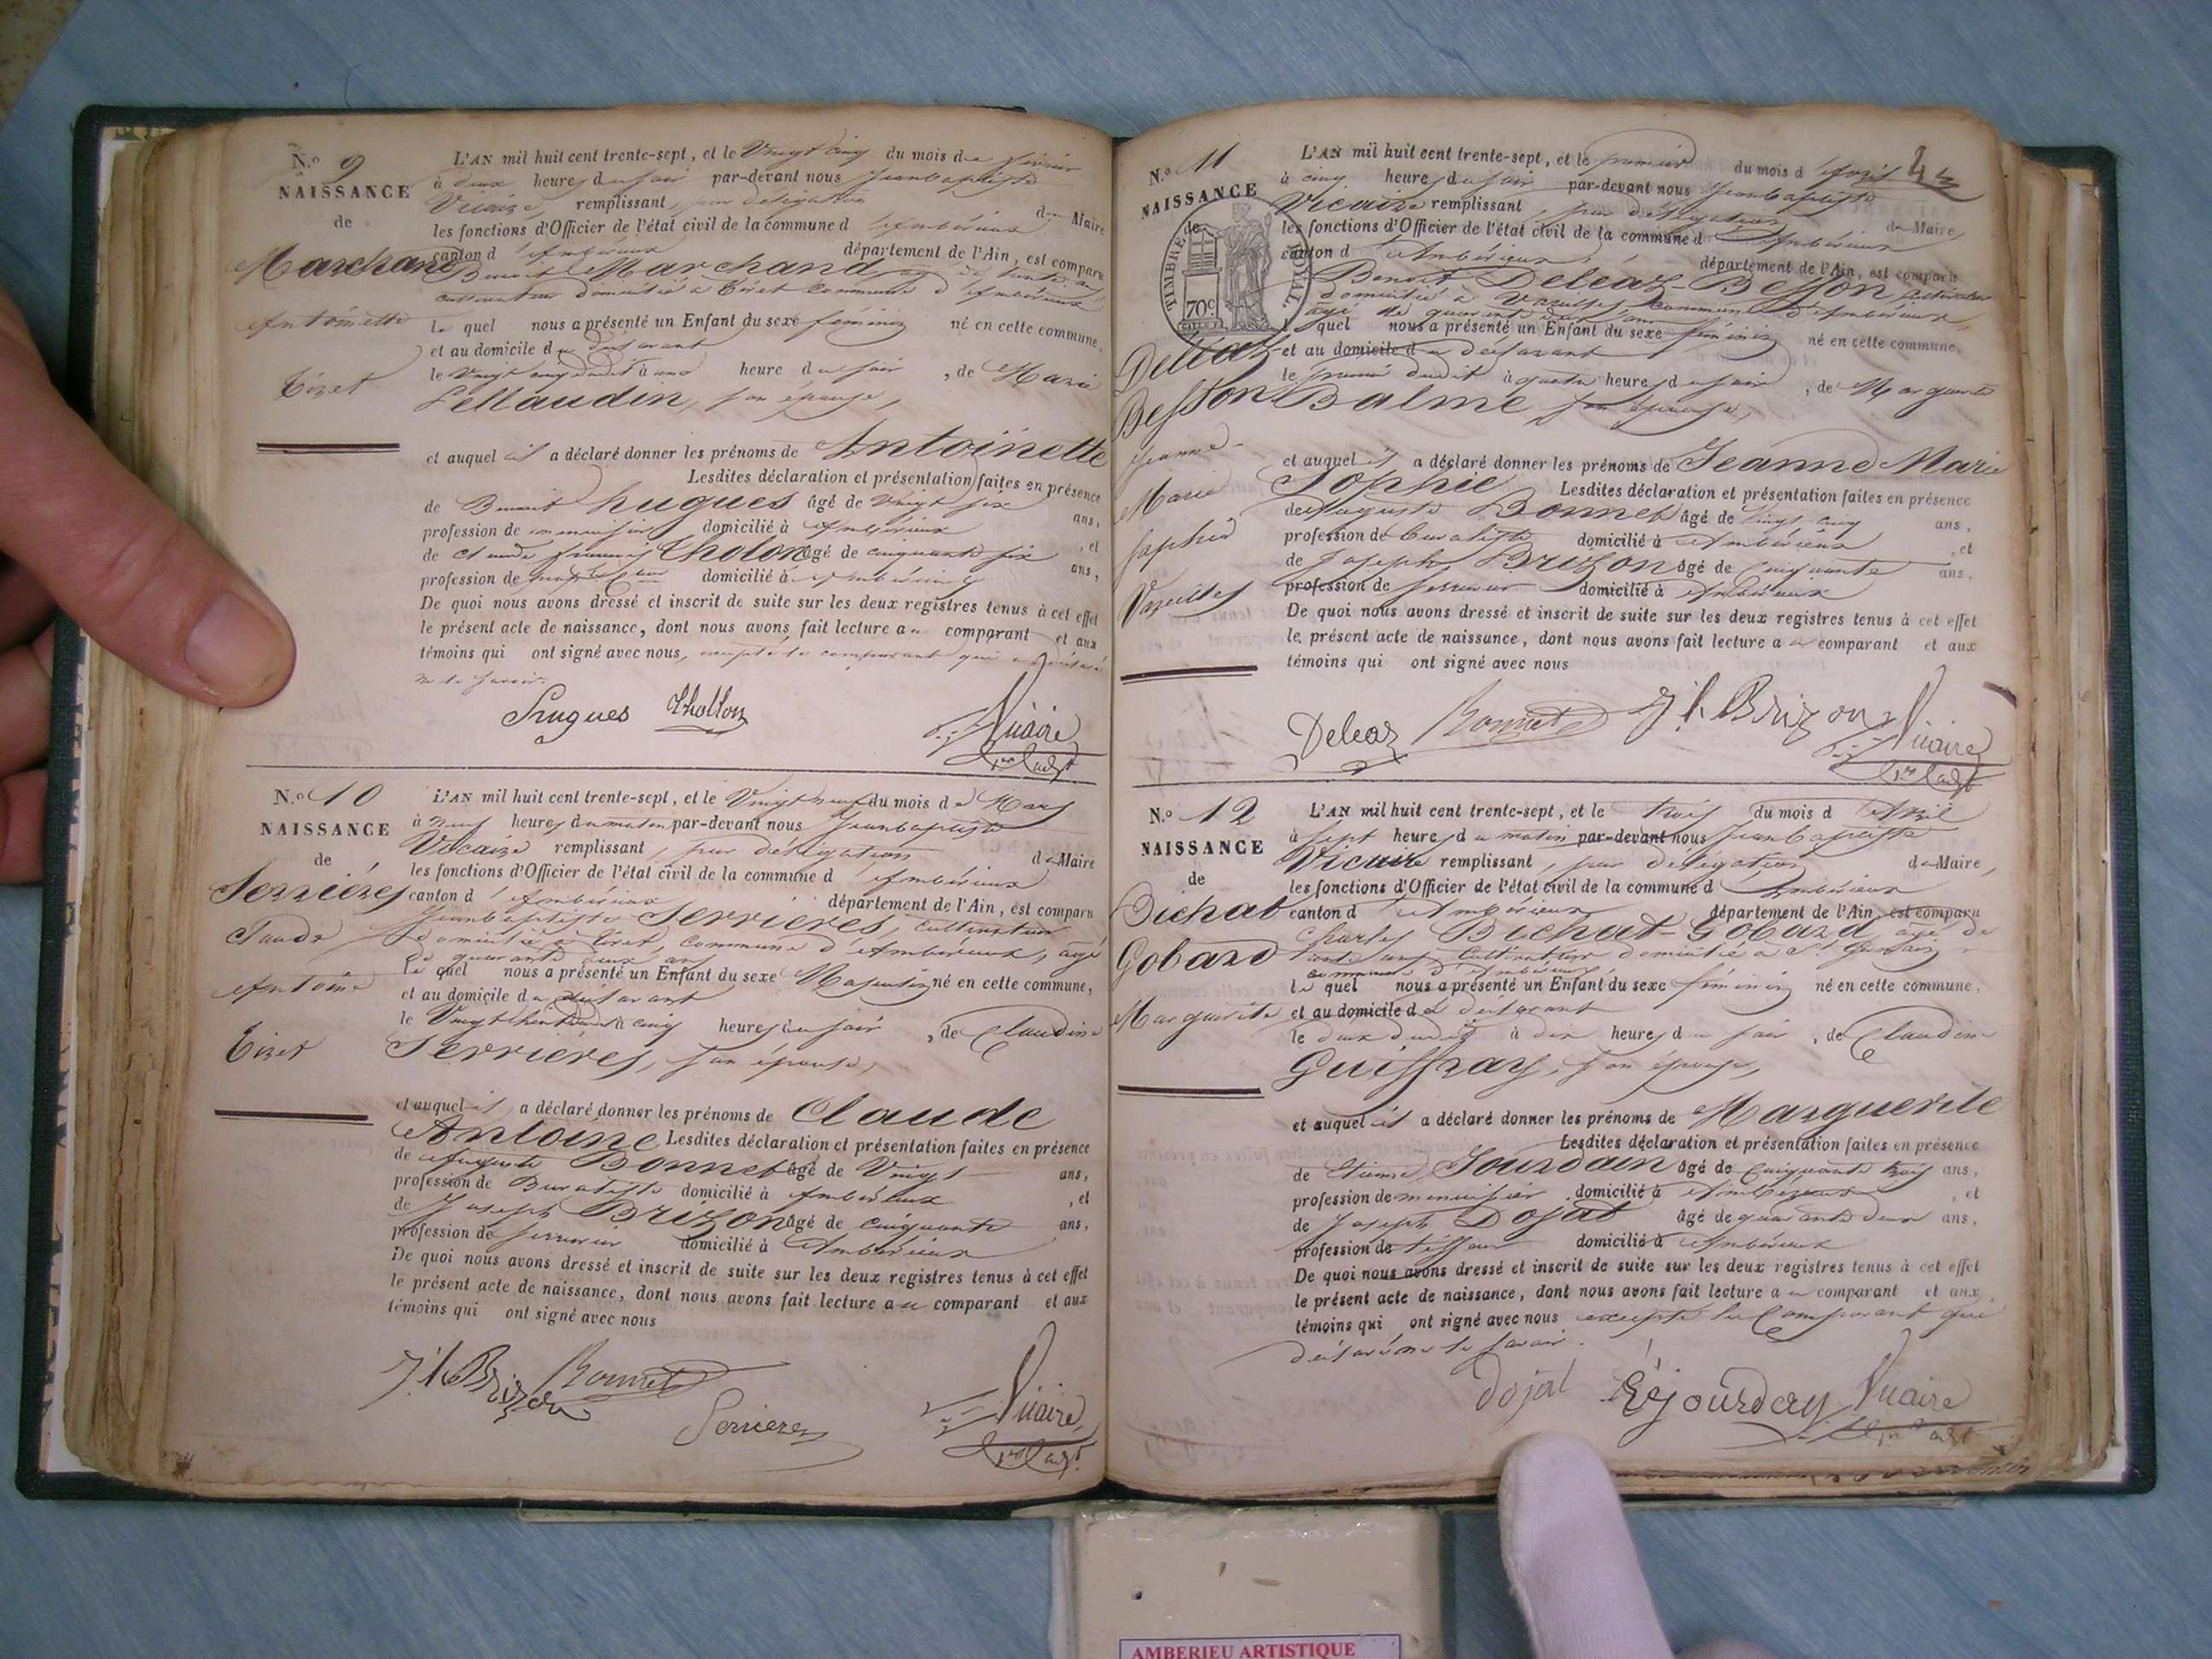 N.o 9
NAISSANCE
de
Marchand
Antoinette
Tiret
L'AN mil huit cent trente-sept, et le Vingt cinq du mois de février
à deux heures du soir par-devant nous Jeanbaptiste
Vicaire, remplissant, par délégation du Maire
les fonctions d'Officier de l'état civil de la commune d'Ambérieux
canton d'Ambérieux département de l'Ain, est comparu
Benoit Marchand, agé de trente ans
cultivateur domicilié à Tiret commune d'Ambérieux
le quel nous a présenté un Enfant du sexe féminin né en cette commune,
et au domicile du déclarant
le Vingt cinq dudit à une heure du soir, de Marie
Lellaudin, son épouse,
et auquel il a déclaré donner les prénoms de Antoinette
Lesdites déclaration et présentation faites en présence
de Benoit hugues âgé de vingt six ans,
profession de menuisier domicilié à Ambérieux, et
de Claude françois Tholon âgé de cinquante six ans,
profession de domicilié à Ambérieux
De quoi nous avons dressé et inscrit de suite sur les deux registres tenus à cet effet
le présent acte de naissance, dont nous avons fait lecture au comparant et aux
témoins qui ont signé avec nous, excepté le comparant qui a déclaré
ne le savoir.
Hugues Thollon Vicaire
N.o 10
NAISSANCE
de
Serrières
Claude
Antoine
Tiret
L'AN mil huit cent trente-sept, et le Vingt neuf du mois de Mars
à neuf heures du matin par-devant nous Jeanbaptiste
Vicaire remplissant, par délégation du Maire
les fonctions d'Officier de l'état civil de la commune d'Ambérieux
canton d'Ambérieux département de l'Ain, est comparu
Jeanbaptiste Serrieres, cultivateur
domicilié à Tiret, commune d'Ambérieux, agé
de quarante deux ans
le quel nous a présenté un Enfant du sexe Masculin né en cette commune,
et au domicile du déclarant
le Vingt huit dudit à cinq heures du soir, de Claudine
Serrières, son épouse,
et auquel il a déclaré donner les prénoms de Claude
Antoine Lesdites déclaration et présentation faites en présence
de Auguste Bonnet âgé de Vingt ans,
profession de Buraliste domicilié à Ambérieux, et
de Joseph Brizon âgé de cinquante ans,
profession de serrurier domicilié à Ambérieux
De quoi nous avons dressé et inscrit de suite sur les deux registres tenus à cet effet
le présent acte de naissance, dont nous avons fait lecture au comparant et aux
témoins qui ont signé avec nous
Brizon Bonnet
Serrieres Vicaire
43
N.o 11
NAISSANCE
de
TIMBRE ROYAL
70c
Deleaz
Besson
Jeanne
Marie
Sophie
Vareilles
L'AN mil huit cent trente-sept, et le premier du mois d'Avril
à cinq heures du soir par-devant nous Jeanbaptiste
Vicaire remplissant, par délégation du Maire,
les fonctions d'Officier de l'état civil de la commune d'Ambérieux
canton d'Ambérieux, département de l'Ain, est comparu
Benoit Deleaz-Besson, cultivateur
domicilié à Vareilles, commune d'Ambérieux,
agé de quarante ans
le quel nous a présenté un Enfant du sexe féminin né en cette commune,
et au domicile du déclarant
le premier dudit à quatre heures du soir, de Marguerite
Balme son épouse,
et auquel il a déclaré donner les prénoms de Jeanne Marie
Sophie Lesdites déclaration et présentation faites en présence
de Auguste Bonnet âgé de vingt cinq ans,
profession de buraliste domicilié à Ambérieux, et
de Joseph Brizon âgé de cinquante ans,
profession de serrurier domicilié à Ambérieux
De quoi nous avons dressé et inscrit de suite sur les deux registres tenus à cet effet
le présent acte de naissance, dont nous avons fait lecture au comparant et aux
témoins qui ont signé avec nous
Deleaz Bonnet Brizon Vicaire
N.o 12
NAISSANCE
de
Bichat
Gobard
Marguerite
L'AN mil huit cent trente-sept, et le trois du mois d'Avril
à sept heures du matin par-devant nous Jeanbaptiste
Vicaire remplissant, par délégation du Maire,
les fonctions d'Officier de l'état civil de la commune d'Ambérieux
canton d'Ambérieux département de l'Ain, est comparu
Charles Bichat-Gobard, agé de
trente ans, Cultivateur domicilié à St Germain
commune d'Ambérieux
le quel nous a présenté un Enfant du sexe féminin né en cette commune,
et au domicile du déclarant
le deux dudit à dix heures du soir, de Claudine
Guiffray, son épouse,
et auquel il a déclaré donner les prénoms de Marguerite
Lesdites déclaration et présentation faites en présence
de Etienne Jourdain âgé de Cinquante trois ans,
profession de menuisier domicilié à Ambérieux, et
de Joseph Dojat âgé de quarante deux ans,
profession de domicilié à Ambérieux
De quoi nous avons dressé et inscrit de suite sur les deux registres tenus à cet effet
le présent acte de naissance, dont nous avons fait lecture au comparant et aux
témoins qui ont signé avec nous excepté le Comparant qui
déclaré ne le savoir.
Dojat Ejourdan Vicaire
AMBERIEU ARTISTIQUE